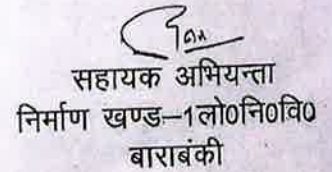 सहायक अभियन्ता
निर्माण खण्ड–1लो0नि0वि0
बाराबंकी